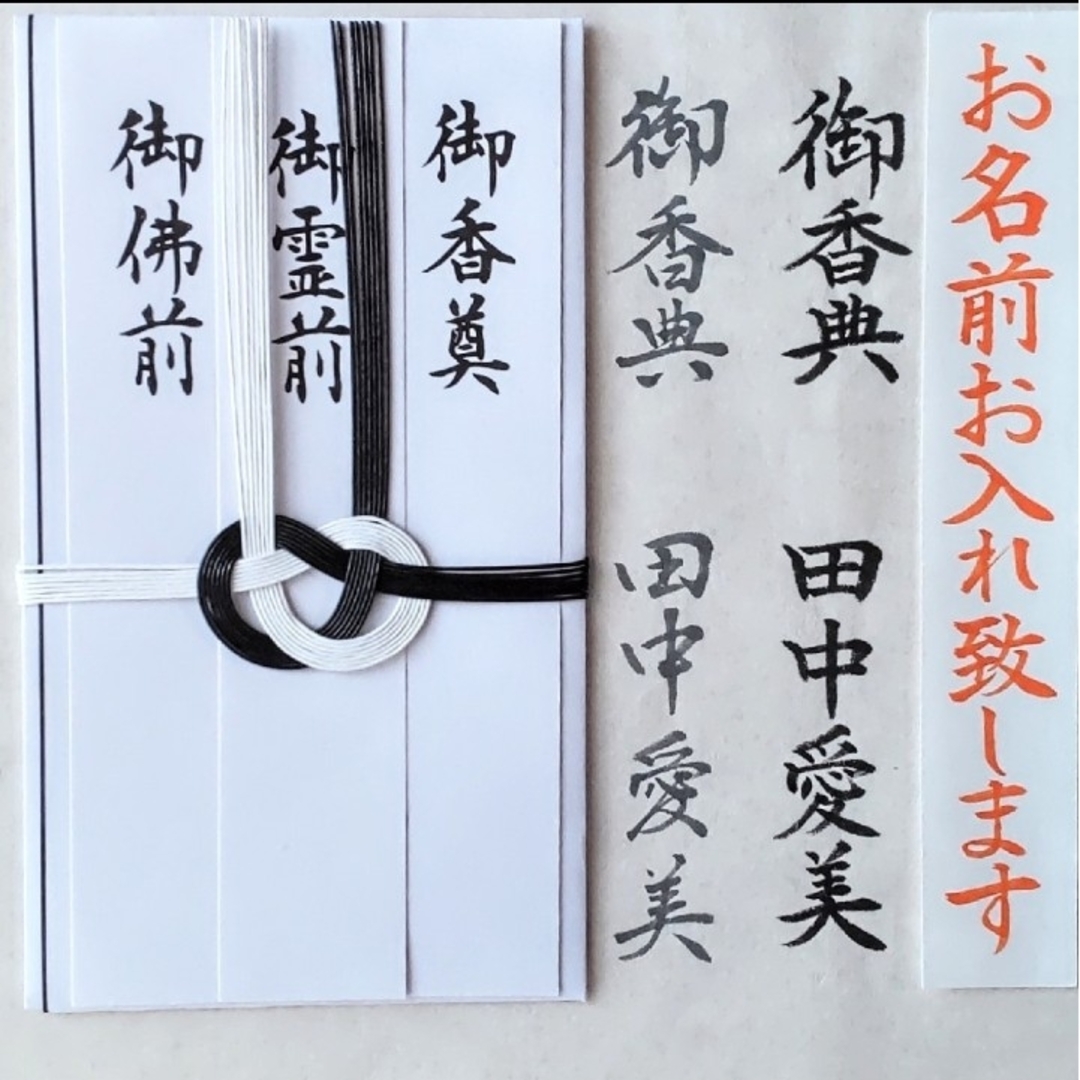 お名前お入れ致します
御香典 田中愛美
御香典 田中愛美
御香奠
御霊前
御佛前